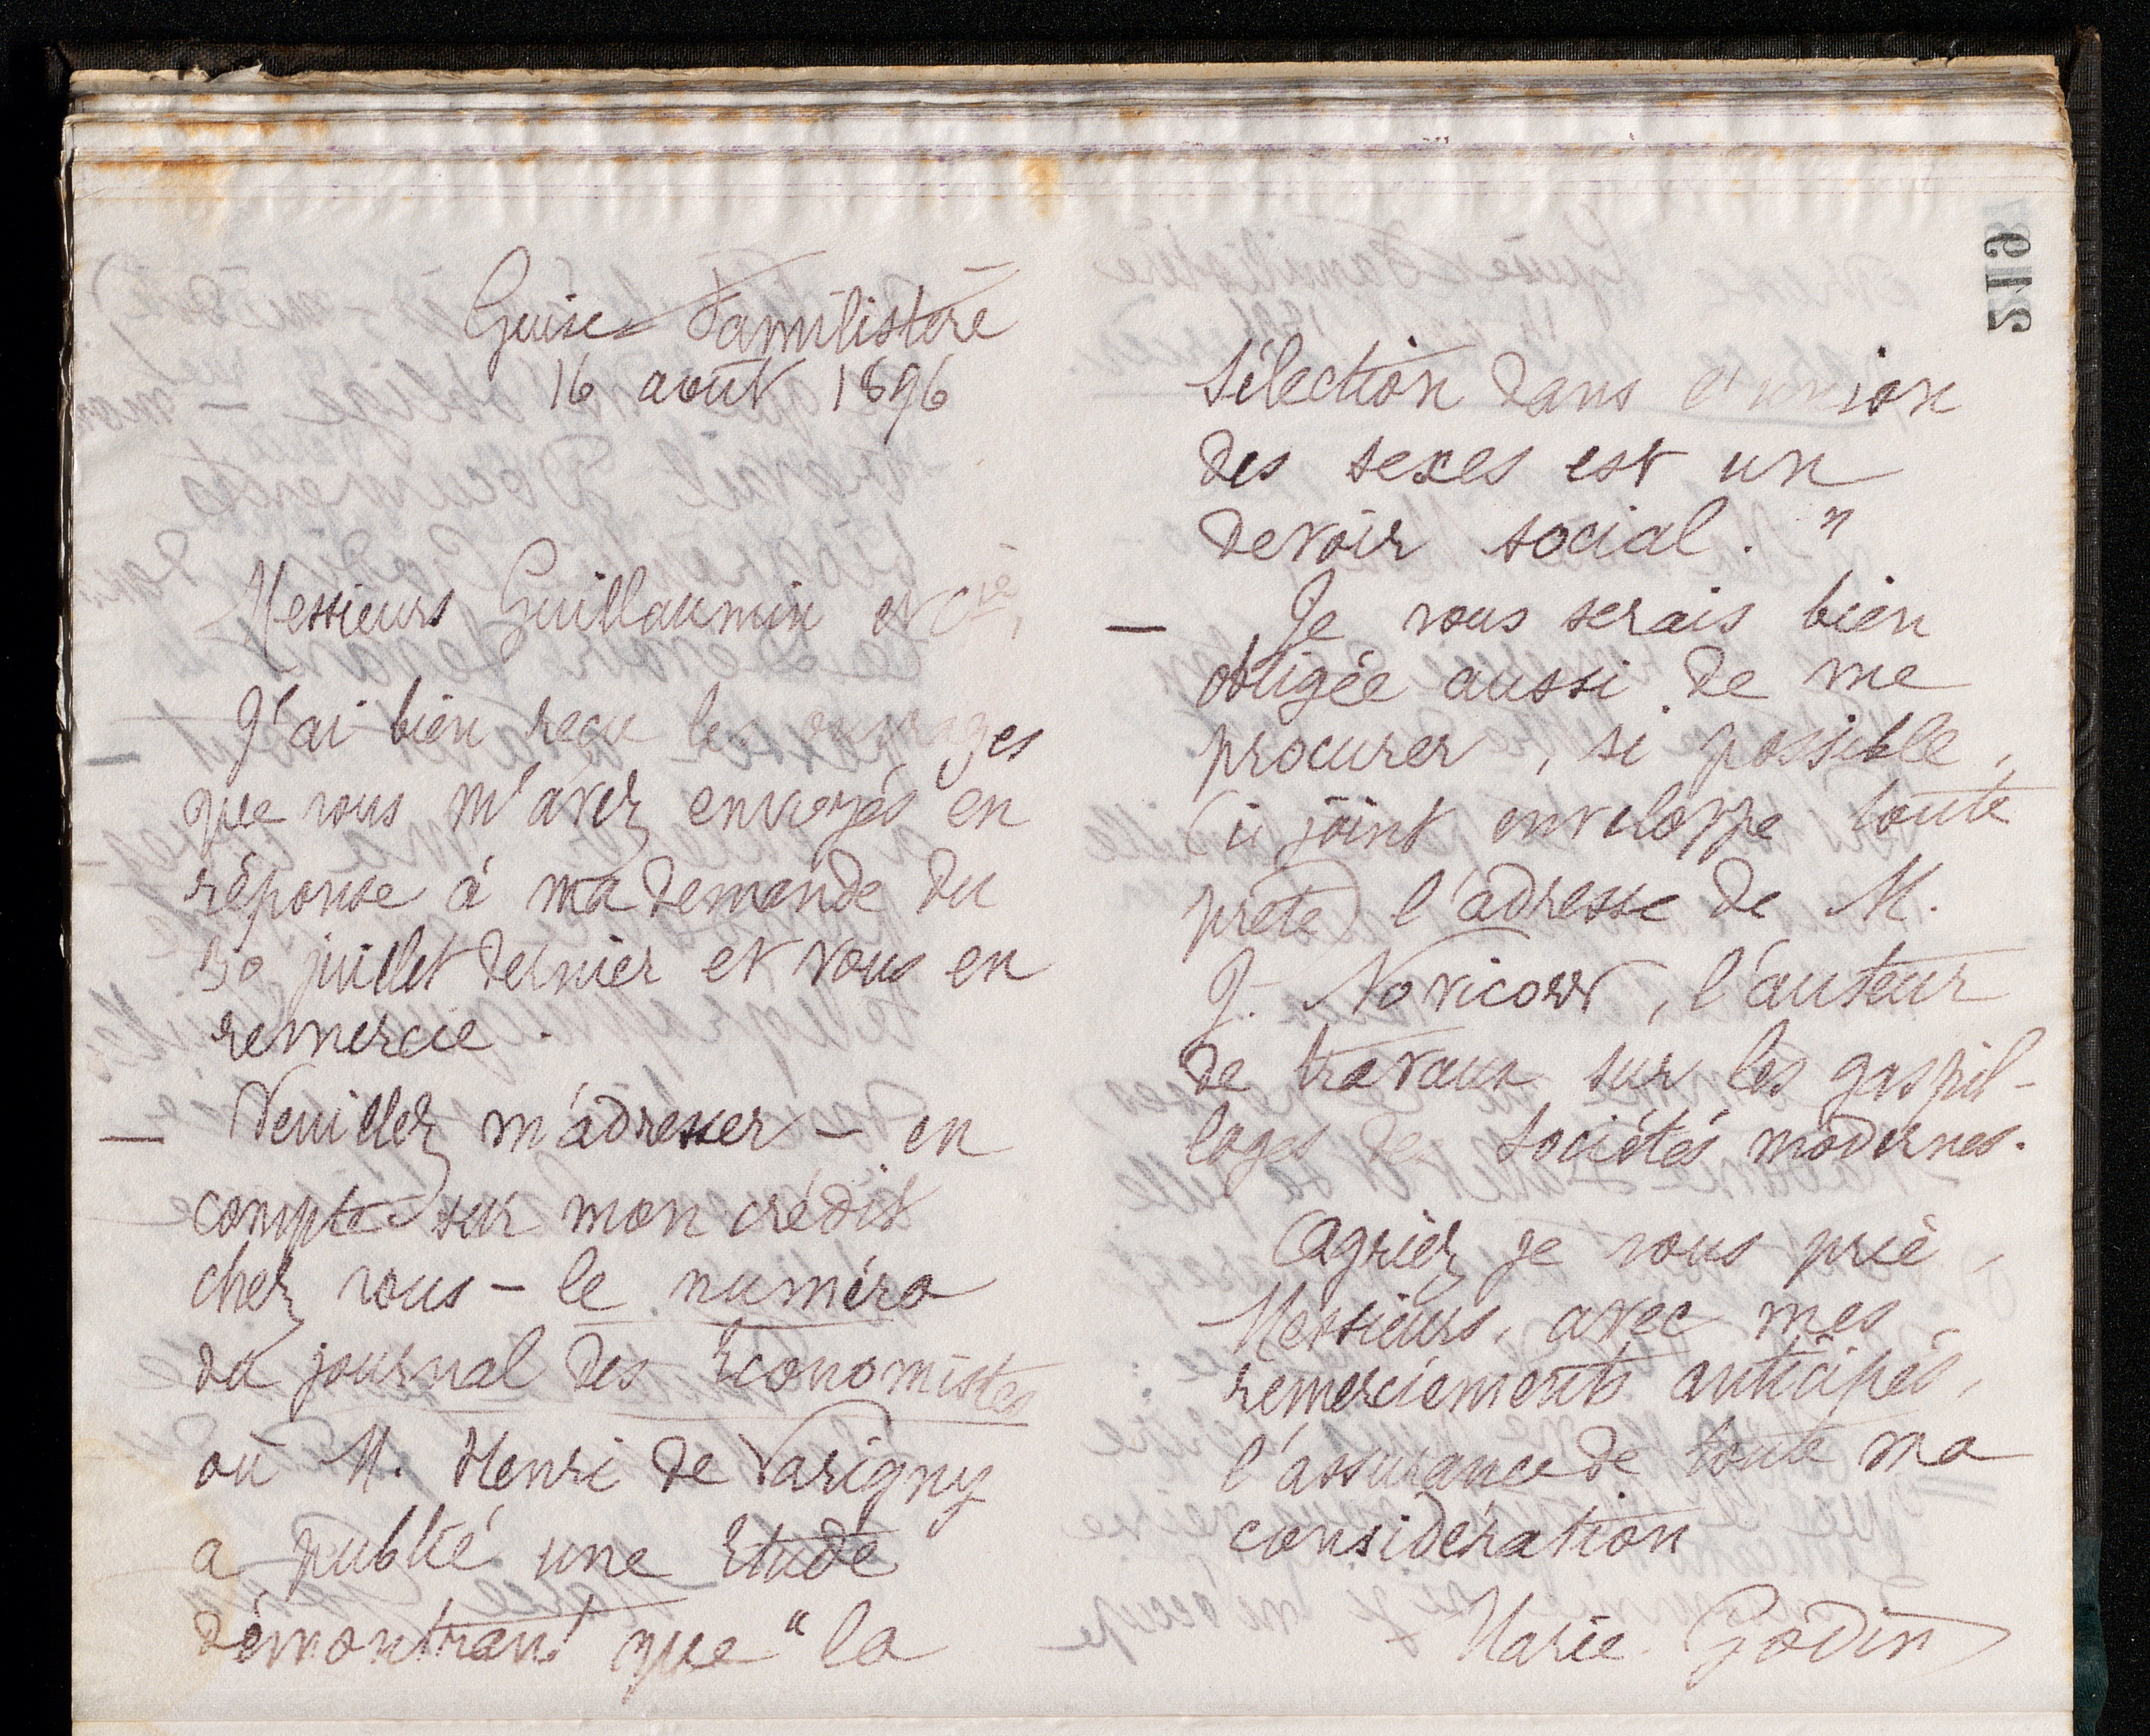 Guise Familistère
16 août 1896
Messieurs Guillaumin et Cie,
J'ai bien reçu les ouvrages
que vous m'avez envoyés en
réponse à ma demande du
30 juillet dernier et vous en
remercie.
— Veuillez m'adresser — en
compte sur mon crédit
chez vous — le numéro
du journal des Economistes
où M. Henri de Varigny
a publié une Etude
démontrant que "la
219
Sélection dans l'union
des sexes est un
devoir social."
— Je vous serais bien
obligée aussi de me
procurer, si possible,
(ci joint enveloppe toute
prête) l'adresse de M.
J. Novicow, l'auteur
de travaux sur les gaspil-
lages des Sociétés modernes.
Agriez je vous prie,
Messieurs, avec mes
remerciements anticipés,
l'assurance de toute ma
considération
Marie Godin